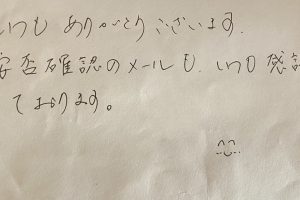 いつも ありがとうございます.
安否確認のメールも いつも 感謝
ております。